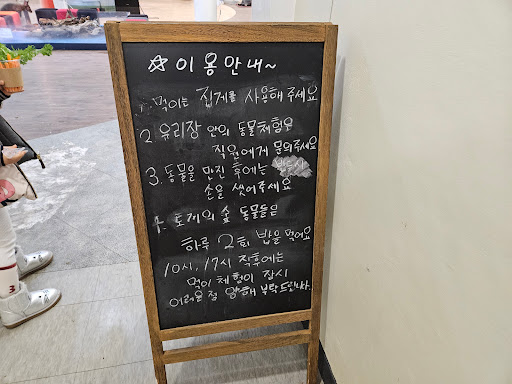 ☆이용안내~
1. 먹이는 집게를 사용해주세요
2. 유리장 안의 동물체험은
직원에게 문의주세요
3. 동물을 만진 후에는 반드시
손을 씻어주세요
4. 토끼의 숲 동물들은
하루 2회 밥을 먹어요
10시, 17시 직후에는
먹이체험이 잠시
어려운점 양해 부탁드립니다.